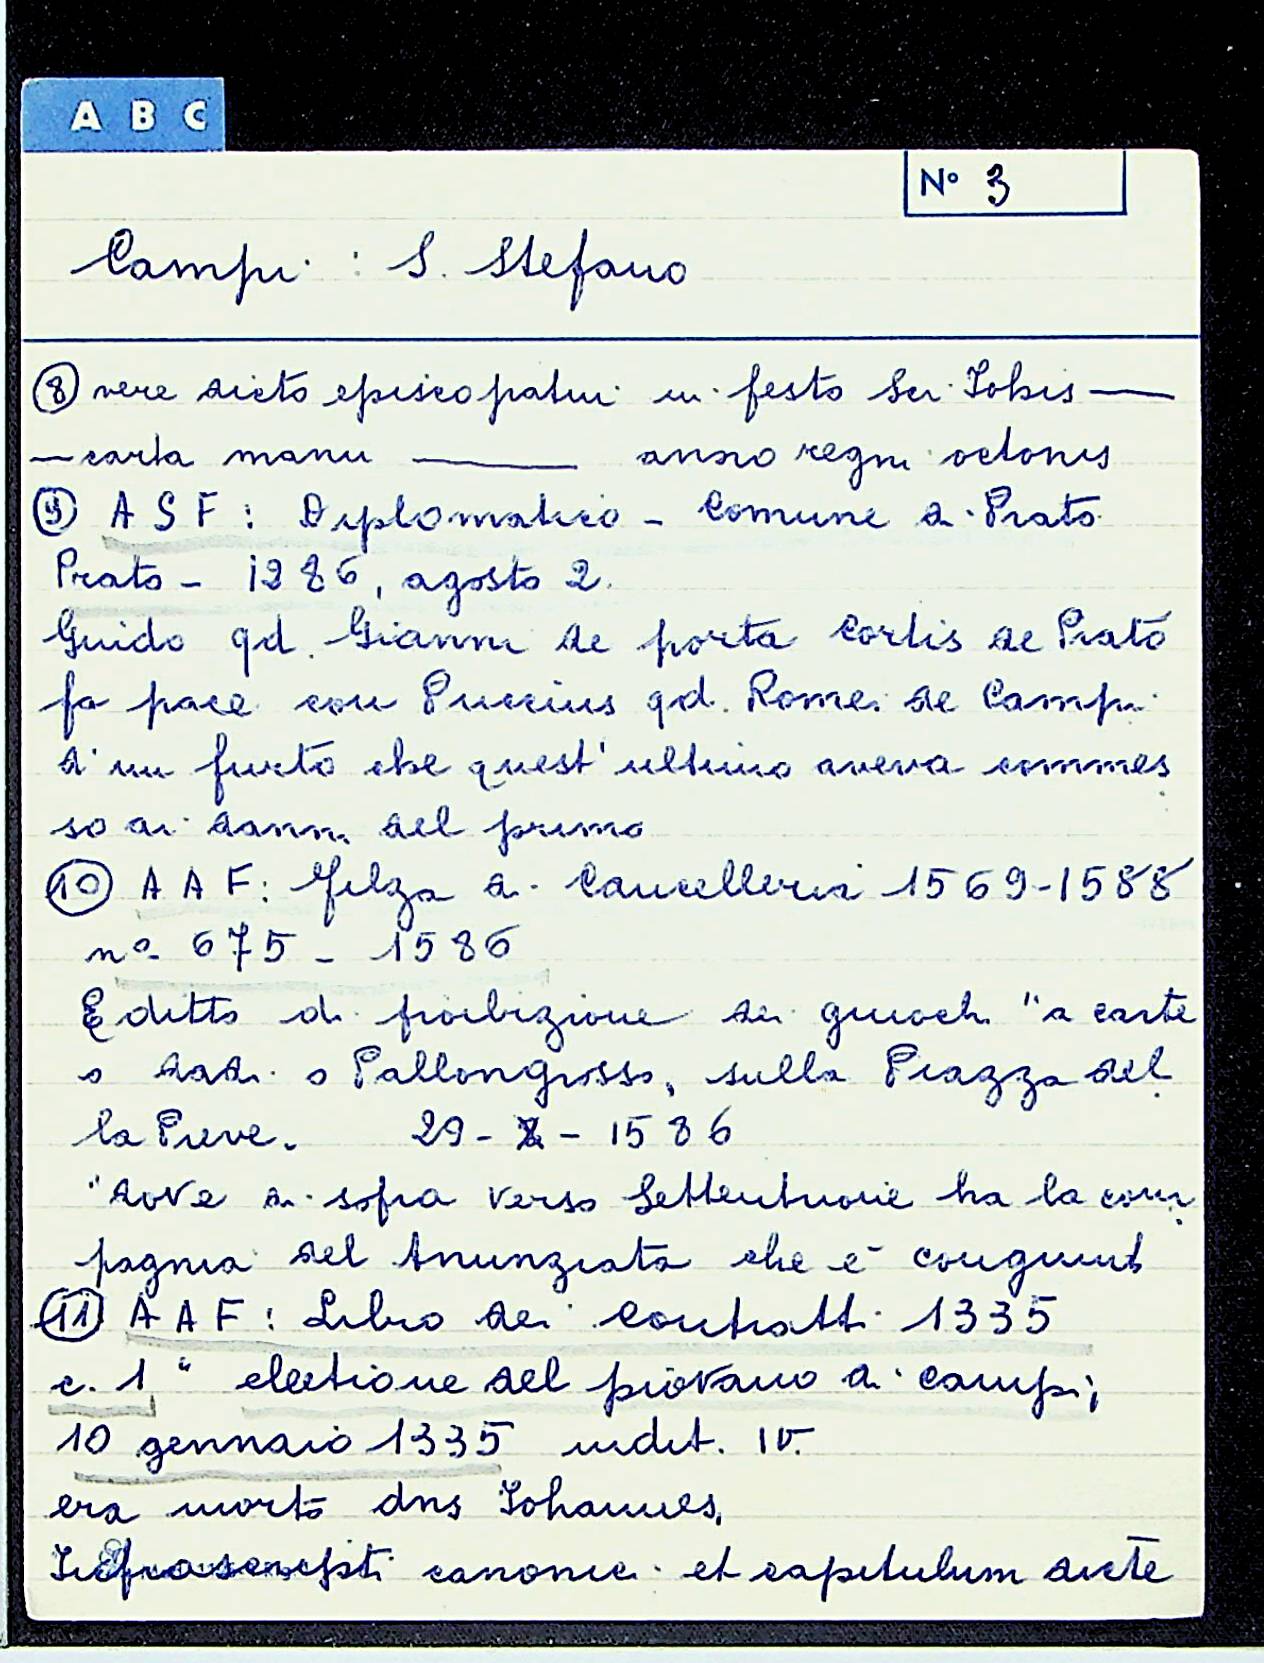 A B C
Nº 3
Campi : S. Stefano
⑧ vere dicto episcopatui in festo Sci Iohis —
— carta manu — anno regni octonis
⑨ A S F : Diplomatico - Comune di Prato
Prato - 1286, agosto 2.
Guido qd. Gianni de porta Cortis de Prato
fa pace con Puccius qd. Romei de Campi
d'un furto che quest'ultimo aveva commes
so ai danni del primo
⑩ A A F : Filza di Cancelleria 1569-1588
nº 675 - 1586
Editto di proibizione dei giuochi "a carte
o dadi o Pallongrosso, sulla Piazza del
la Pieve. 29 - - 1586
"dove di sopra verso Settentrione ha la com
pagnia del Anunziata che è congiunt
⑪ A A F : Libro dei Contratti 1335
c. 1 " elettione del piovano di Campi;
10 gennaio 1335 indit. IV.
era morto dns Iohannes,
Infrascripti canonici et capitulum dicte